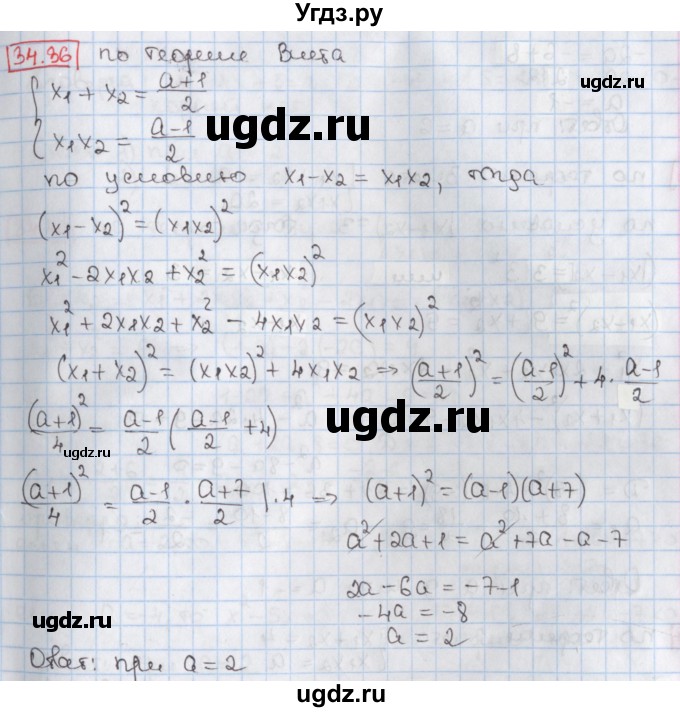 Угдз.ру
34.36 по теореме Виета
x₁ + x₂ = (a+1)/2
x₁x₂ = (a-1)/2
ugdz.ru
ugdz.ru
по условию x₁-x₂ = x₁x₂, тогда
(x₁-x₂)² = (x₁x₂)²
x₁² - 2x₁x₂ + x₂² = (x₁x₂)²
ugdz.ru
x₁² + 2x₁x₂ + x₂² - 4x₁x₂ = (x₁x₂)²
(x₁+x₂)² = (x₁x₂)² + 4x₁x₂ => ((a+1)/2)² = ((a-1)/2)² + 4·(a-1)/2
(a+1)²/4 = (a-1)/2 ((a-1)/2 + 4)
ugdz.ru
(a+1)²/4 = (a-1)/2 · (a+7)/2 |·4 => (a+1)² = (a-1)(a+7)
a² + 2a + 1 = a² + 7a - a - 7
ugdz.ru
2a - 6a = -7-1
-4a = -8
a = 2
ugdz.ru
Ответ: при a = 2
ugdz.ru